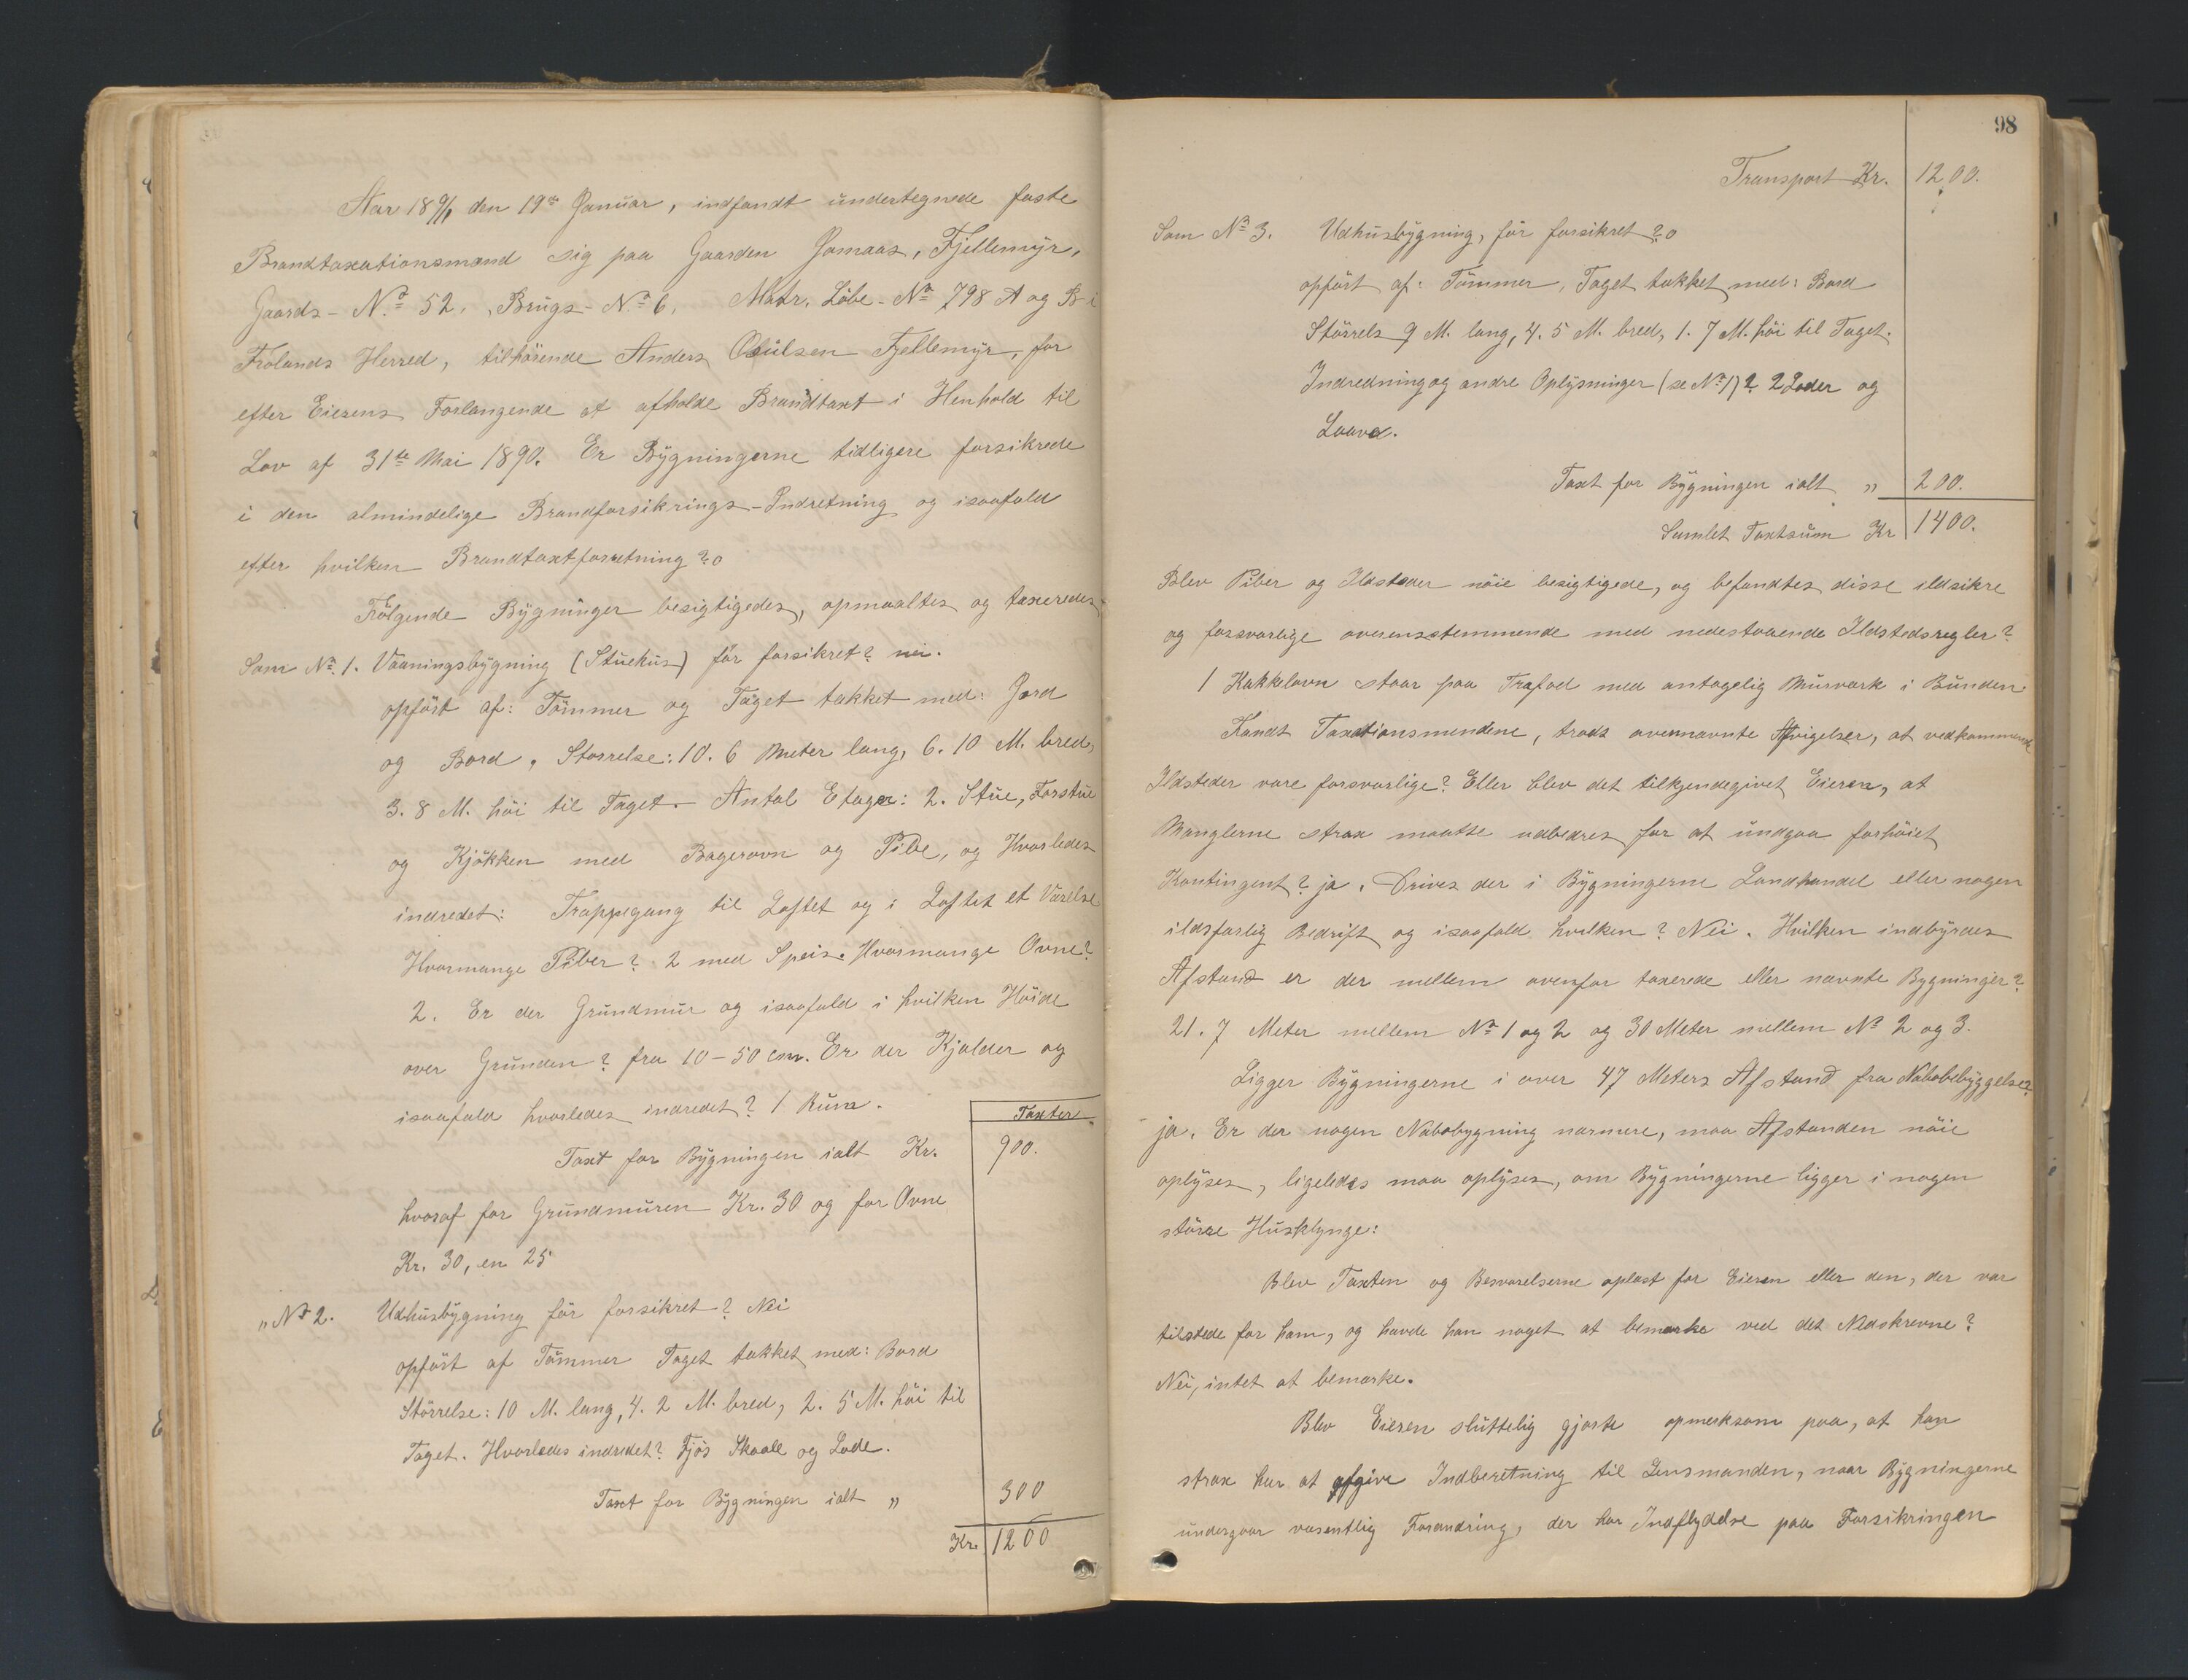 Aar 18 9/1 den 19de Januar, indfandt undertegnede faste
Brandtaxationsmænd sig paa Gaarden Jomaas, Fjellemyr,
Gaards-No 52, Brugs-No 6, Matr. Löbe-No 798 A og B i
Frolands Herred, tilhörende Anders Olsen Fjellemyr, for
efter Eierens Forlangende at afholde Brandtaxt i Henhold til
Lov af 31te Mai 1890. Er Bygningerne tidligere forsikrede
i den almindelige Brandforsikrings-Indretning og isaafald
efter hvilken Brandtaxtforretning? o
Fölgende Bygninger besigtigedes, opmaaltes og taxeredes
Som No 1. Vaaningsbygning (Stuehus) för forsikret? nei.
opfört af: Tömmer og Taget tækket med: Jord
og Bord. Störrelse: 10.6 Meter lang, 6.10 M. bred,
3.8 M. höi til Taget. Antal Etager: 2. Stue, Forstue
og Kjökken med Bagerovn og Pibe, og Hvorledes
indredet: Trappegang til Loftet og i Loftet et Værelse
Hvormange Piber? 2 med Speis. Hvormange Ovne?
2. Er der Grundmur og isaafald i hvilken Höide
over Grunden? fra 10-50 cm. Er der Kjælder og
isaafald hvorledes indredet? 1 Rum.
Taxter
Taxt for Bygningen ialt Kr. 900.
hvoraf for Grundmuren Kr. 30 og for Ovne
Kr. 30, en 25
„ No 2. Udhusbygning för forsikret? Nei
opfört af Tömmer Taget tækket med: Bord
Störrelse: 10 M. lang, 4.2 M. bred, 2.5 M. höi til
Taget. Hvorledes indredet? Fjös Skaale og Lade.
Taxt for Bygningen ialt „ 300
Kr. 1200
98
Transport Kr. 1200.
Som No 3. Udhusbygning, för forsikret? o
opfört af: Tömmer, Taget tækket med: Bord
Störrels 9 M. lang, 4.5 M. bred, 1.7 M. höi til Taget.
Indredning og andre Oplysninger (se No 1)? 2 Lader og
Laave.
Taxt for Bygningen ialt „ 200.
Samlet Taxtsum Kr 1400.
Blev Piber og Ildsteder nöie besigtigede, og befandtes disse ildsikre
og forsvarlige overensstemmende med nedestaaende Ildstedsregler?
1 Kakklovn staar paa Træfod med antagelig Murværk i Bunden.
Fandt Taxationsmendene, trods ovennævnte Afvigelser, at vedkommende
Ildsteder vare forsvarlige? Eller blev det tilkjendegivet Eieren, at
Manglerne strax maatte udbedres for at undgaa forhöiet
Kontingent? ja. Drives der i Bygningerne Landhandel eller nogen
ildsfarlig Bedrift og isaafald hvilken? Nei. Hvilken indbyrdes
Afstand er der mellem ovenfor taxerede eller nævnte Bygninger?
21.7 Meter mellem No 1 og 2 og 30 Meter mellem No 2 og 3.
Ligger Bygningerne i over 47 Meters Afstand fra Nabobebyggelse?
ja. Er der nogen Nabobygning nærmere, maa Afstanden nöie
oplyses, ligeledes maa oplyses, om Bygningerne ligger i nogen
större Husklynge:
Blev Taxten og Besvarelserne oplæst for Eieren eller den, der var
tilstede for ham, og havde han noget at bemærke ved det Nedskrevne?
Nei, intet at bemærke.
Blev Eieren sluttelig gjorte opmerksom paa, at han
strax har at afgive Indberetning til Lensmanden, naar Bygningerne
undergaar væsentlig Forandring, der har Indflydelse paa Forsikringen